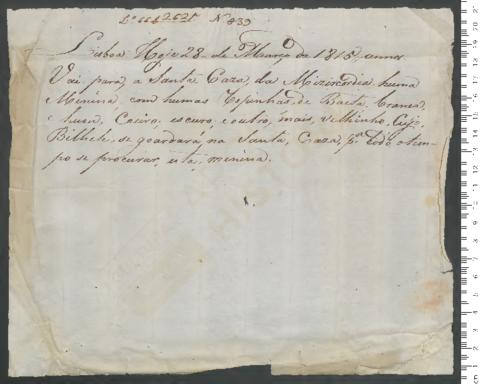 Lº 66 f 262 v Nº 839
Lisboa Hoje 28 de Março de 1818, annos
Vai para, a Santa Caza, da Mizericordia huma
Menina, com humas Topinhas de Baeta, branca,
e hum, Coeiro, escuro, e outro, mais, velhinho, Cujo,
Bilhete, se goardará, na Santa, Caaza, pª todo o tem-
po se procurar, esta, menina.